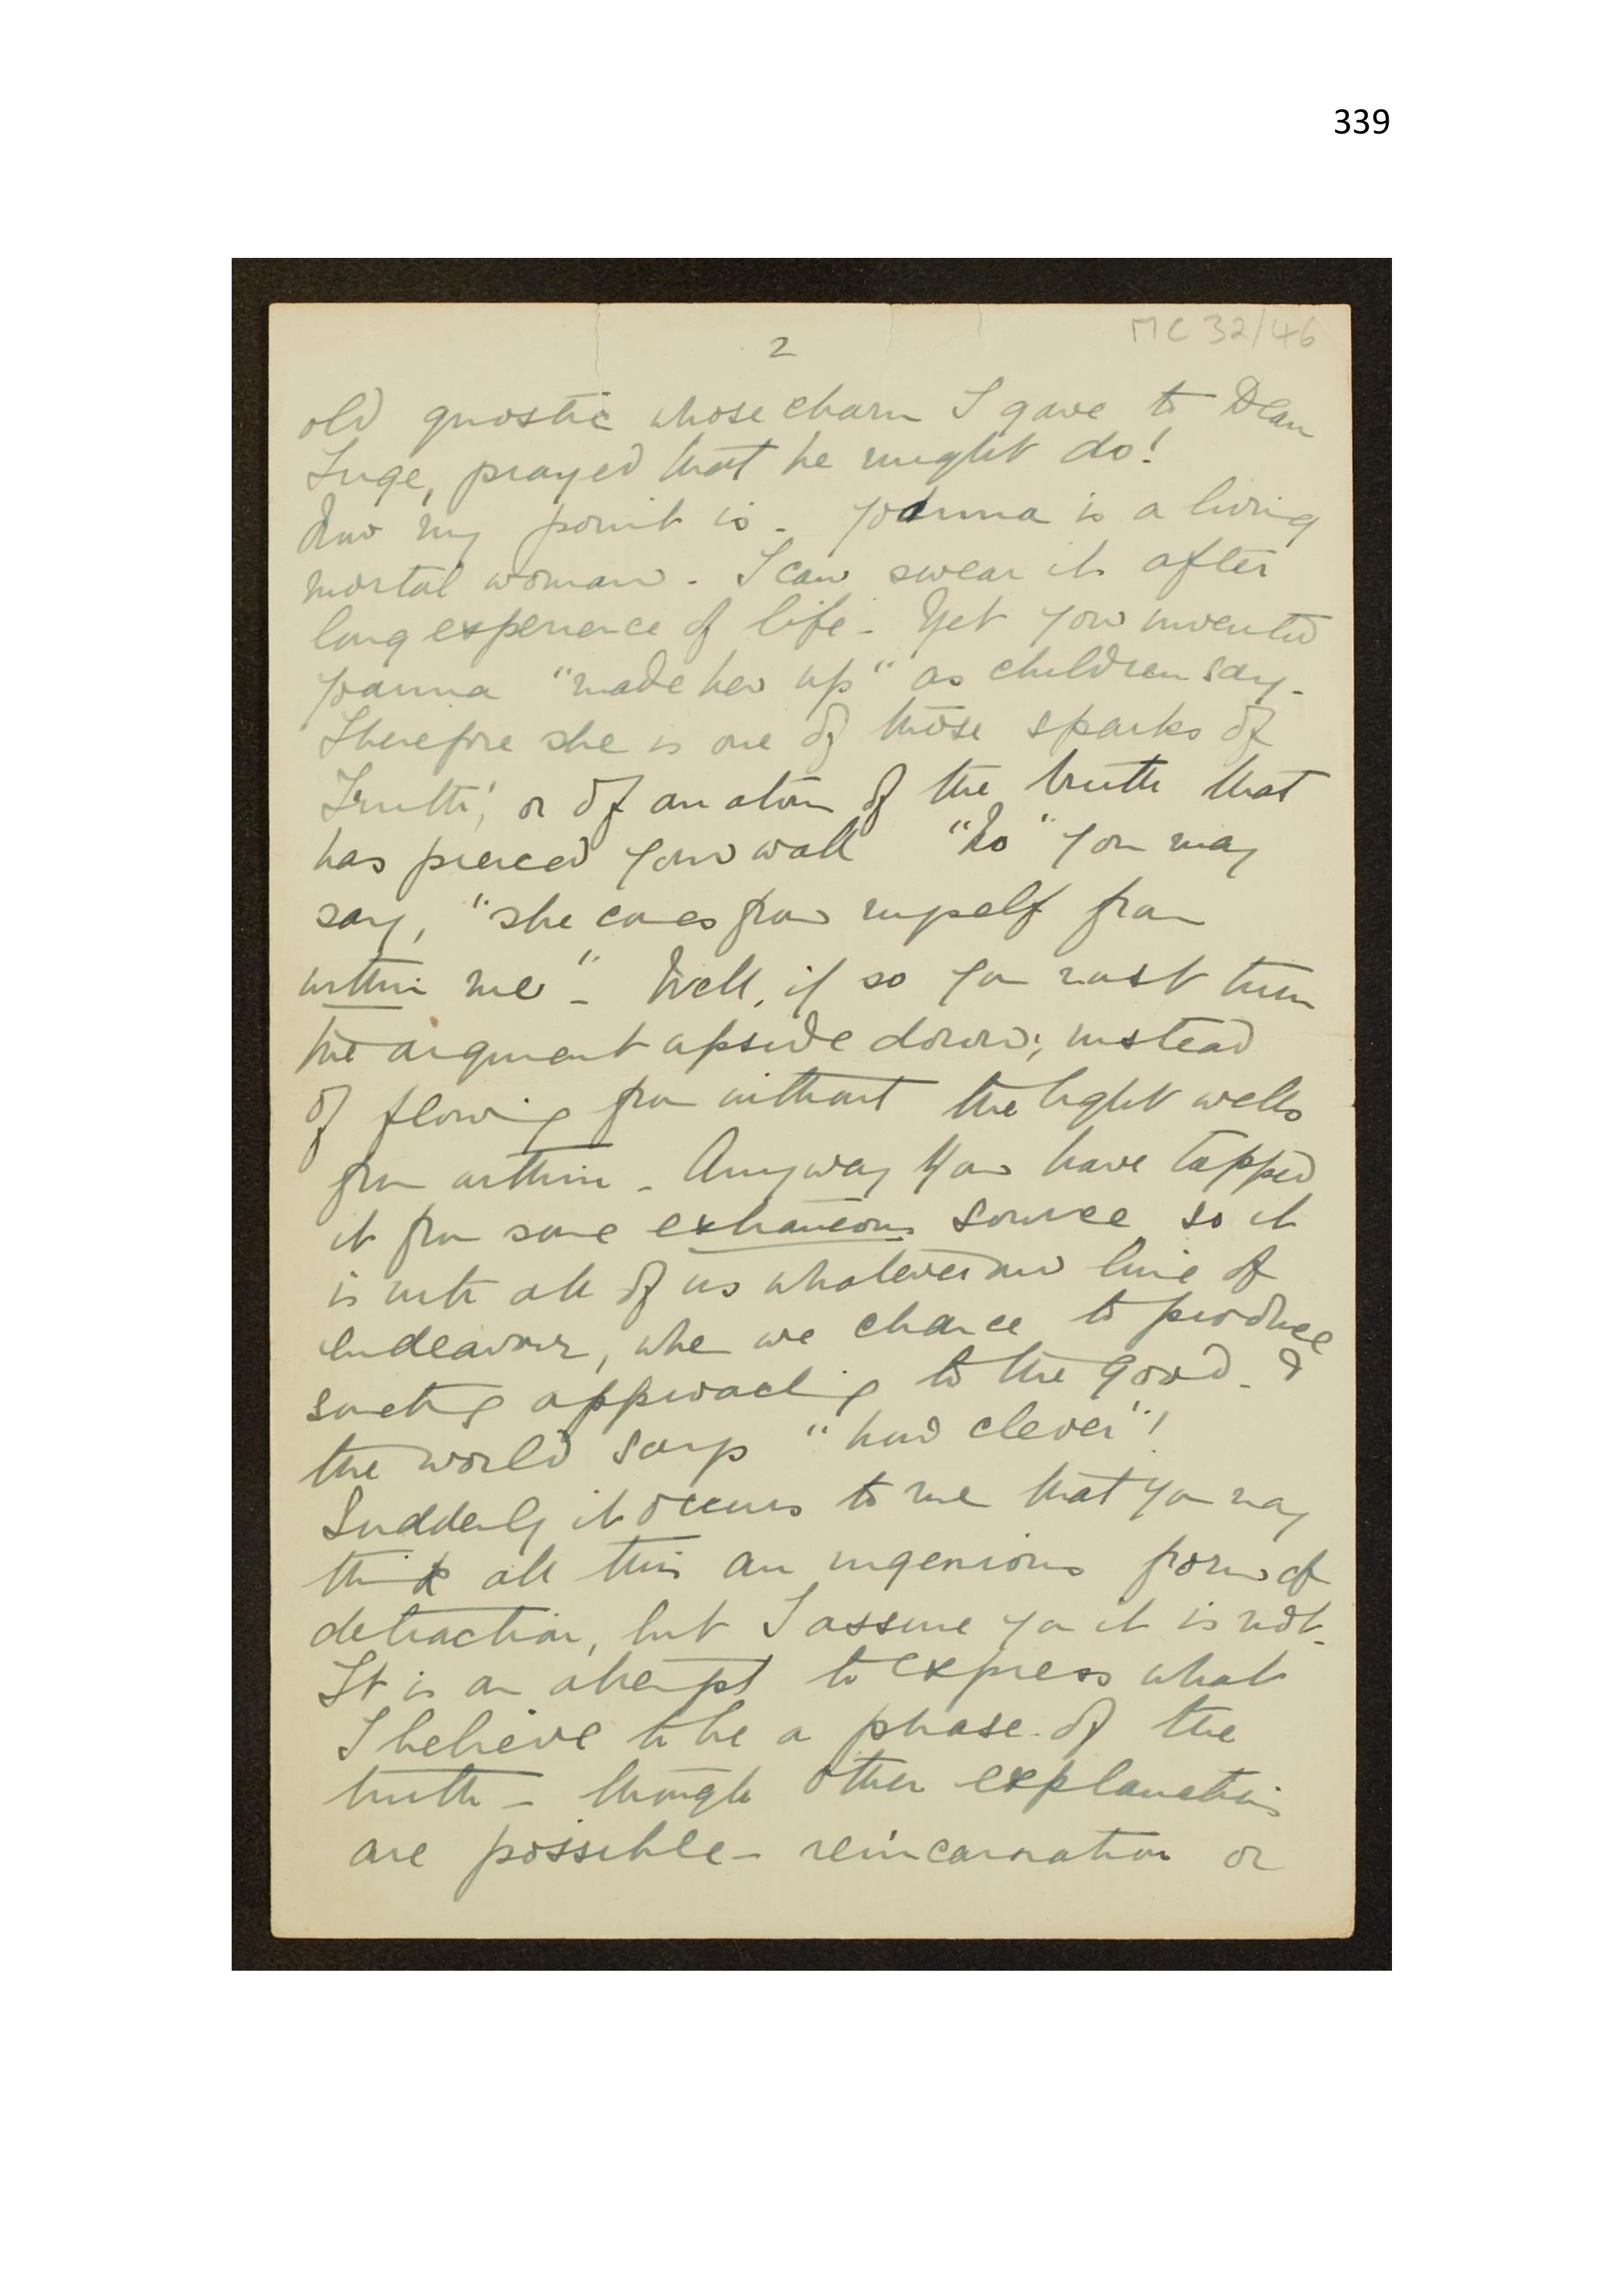 339
MC 32/46
2
old gnostic whose charm I gave to Dean
Inge, prayed that he might do!
Now my point is - Joanna is a living
mortal woman. I can swear it after
long experience of life - Yet you invented
Joanna "made her up" as children say.
Therefore she is one of those sparks of
Truth, or of an atom of the truth that
has pierced your wall "No" you may
say, "she comes from myself from
within me" - Well, if so you must turn
the argument upside down; instead
of flowing from without the light wells
from within - Anyway you have tapped
it from some extraneous source so it
is with all of us whatever our line of
endeavour, when we chance to produce
something approaching to the good. &
the world says "how clever"!
Suddenly it occurs to me that you may
think all this an ingenious form of
detraction, but I assure you it is not.
It is an attempt to express what
I believe to be a phase of the
truth - though other explanations
are possible - reincarnation or